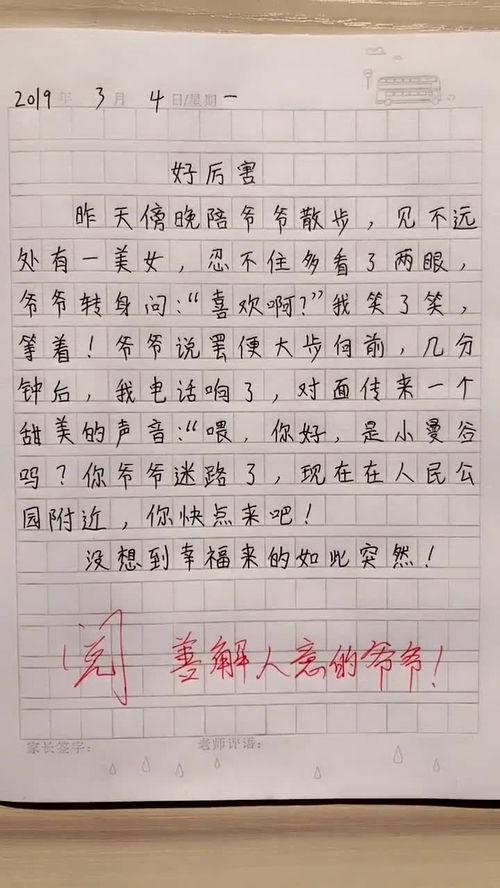 2019年 3月 4日/星期一
好厉害
昨天傍晚陪爷爷散步，见不远
处有一美女，忍不住多看了两眼，
爷爷转身问:“喜欢啊?”我笑了笑，
等着！爷爷说罢便大步向前，几分
钟后，我电话响了，对面传来一个
甜美的声音:“喂，你好，是小曼谷
吗？你爷爷迷路了，现在在人民公
园附近，你快点来吧！
没想到幸福来的如此突然！
阅 善解人意的爷爷！
家长签字： 老师评语：